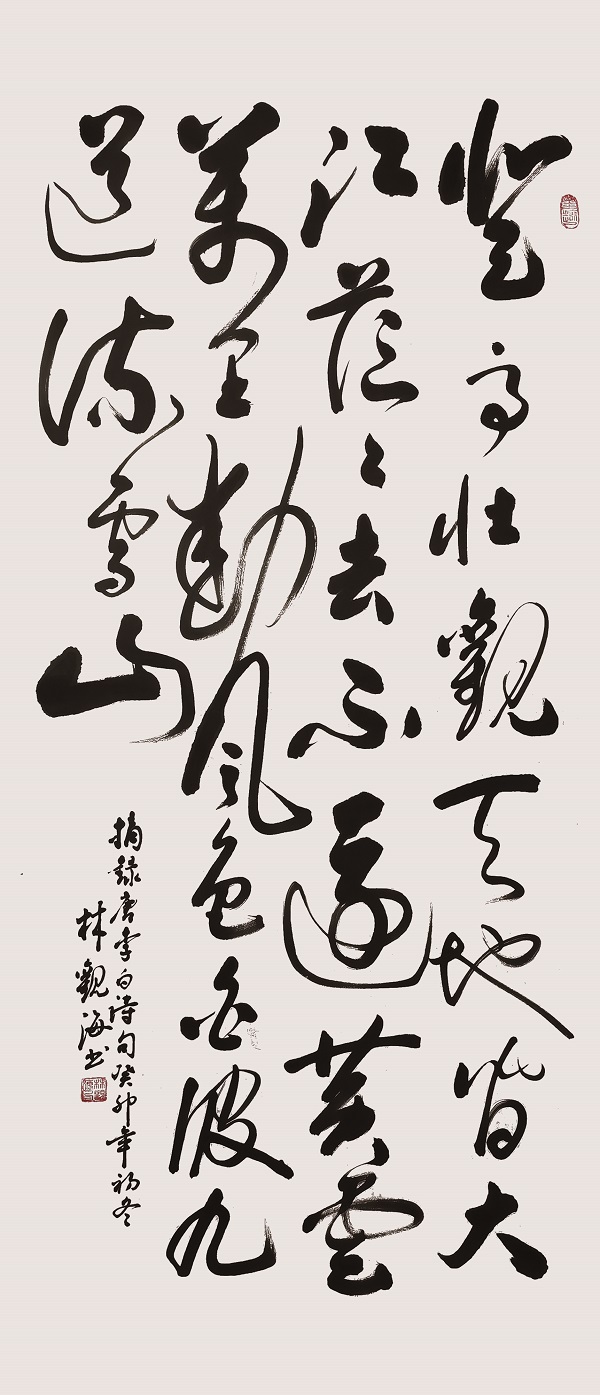 登高壮觀天地間大
江茫々去不還黄雲
萬里動風色白波九
道流雪山
摘録唐李白詩句癸卯年初冬
林觀海书